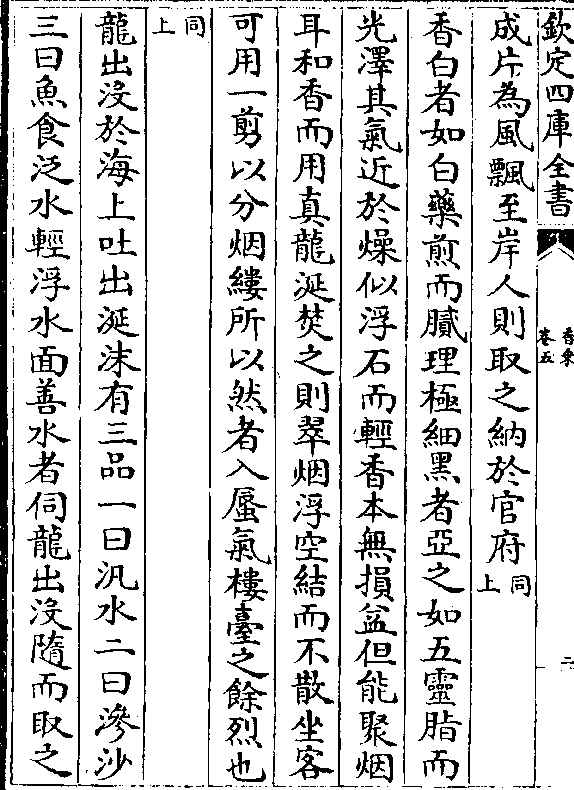 欽定四庫全書
香乘
卷五
二
成片為風飄至岸人則取之納於官府同上
香白者如白藥煎而膩理極細黑者亞之如五靈脂而
光澤其氣近於燥似浮石而輕香本無損益但能聚烟
耳和香而用真龍涎焚之則翠烟浮空結而不散坐客
可用一剪以分烟縷所以然者入蜃氣樓臺之餘烈也
同上
龍出没於海上吐出涎沫有三品一曰汎水二曰滲沙
三曰魚食泛水輕浮水面善水者伺龍出没隨而取之